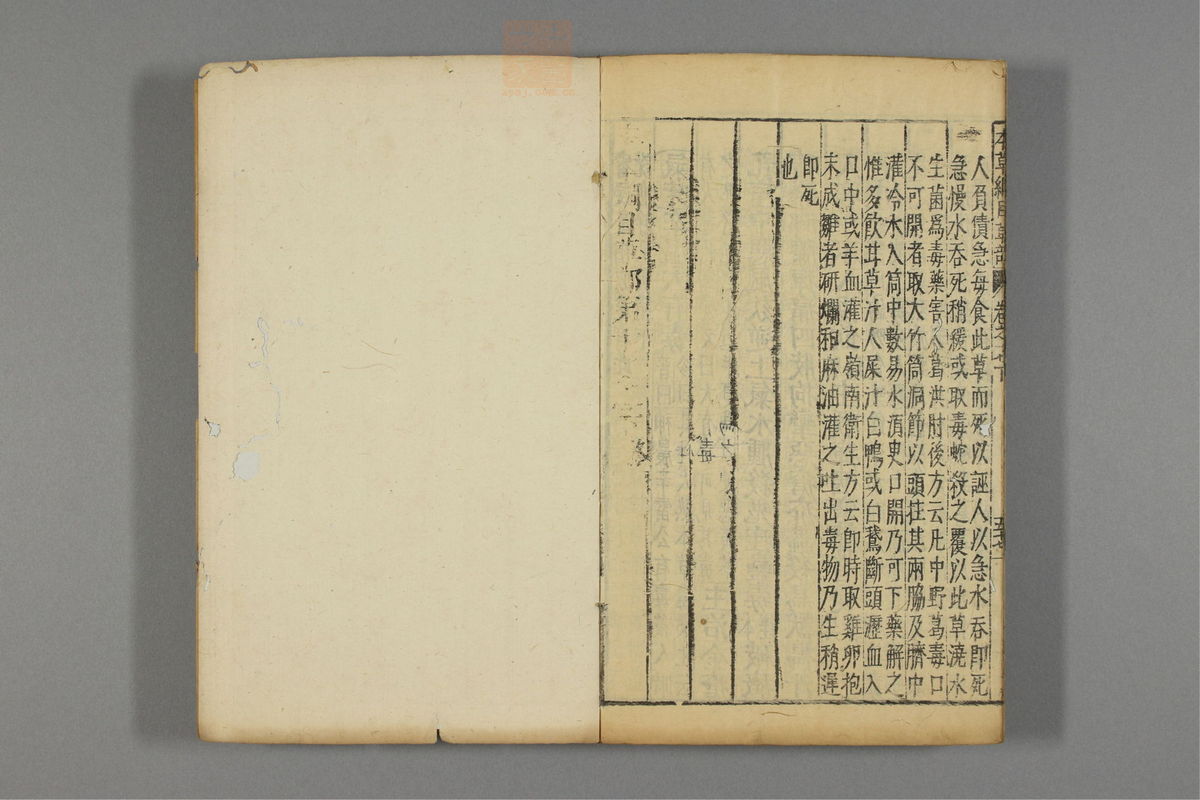 本草綱目草部 卷之十七下
人負債急每食此草而死以誣人以急水吞即死
急慢水吞死稍緩或取毒蛇殺之覆以此草澆水
生菌爲毒藥害人葛洪肘後方云凡中野葛毒口
不可開者取大竹筒洞節以頭拄其兩脇及臍中
灌冷水入筒中數易水須臾口開乃可下藥解之
惟多飲甘草汁人屎汁白鴨或白鵝斷頭瀝血入
口中或羊血灌之嶺南衛生方云即時取雞卵抱
未成雛者研爛和麻油灌之吐出毒物乃生稍遲
即死
也
毒
綱目草部第